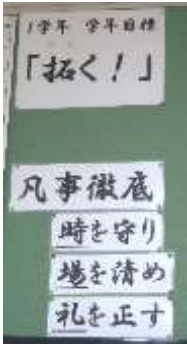 1学年 学年目標
「拓く!」
凡事徹底
時を守り
場を清め
礼を正す